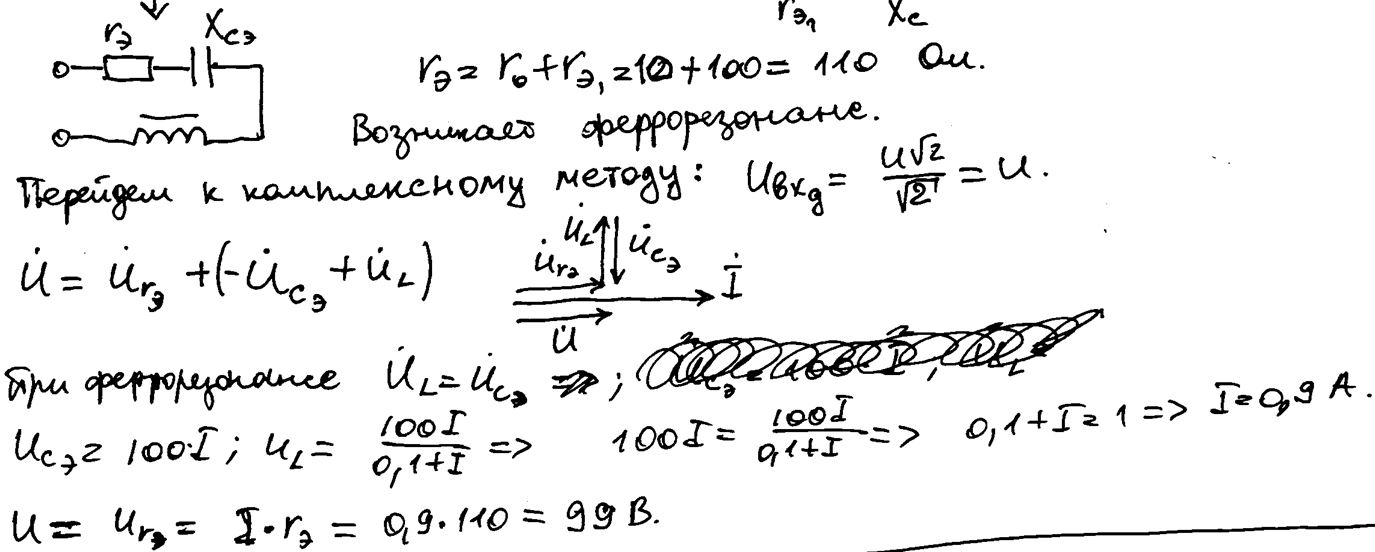 rэ₁ Xc
rэ Xcэ
rэ = r₀ + rэ₁ = 10 + 100 = 110 Ом.
Возникает феррорезонанс.
Перейдем к комплексному методу: Uвхд = U√2/√2 = U.
U̇ = U̇rэ + (-U̇cэ + U̇L) U̇rэ U̇L U̇cэ İ
U̇
При феррорезонансе U̇L = U̇cэ ;
Ucэ = 100·I; UL = 100I/(0,1+I) => 100I = 100I/(0,1+I) => 0,1+I = 1 => I = 0,9 А.
U = Urэ = I·rэ = 0,9·110 = 99 В.